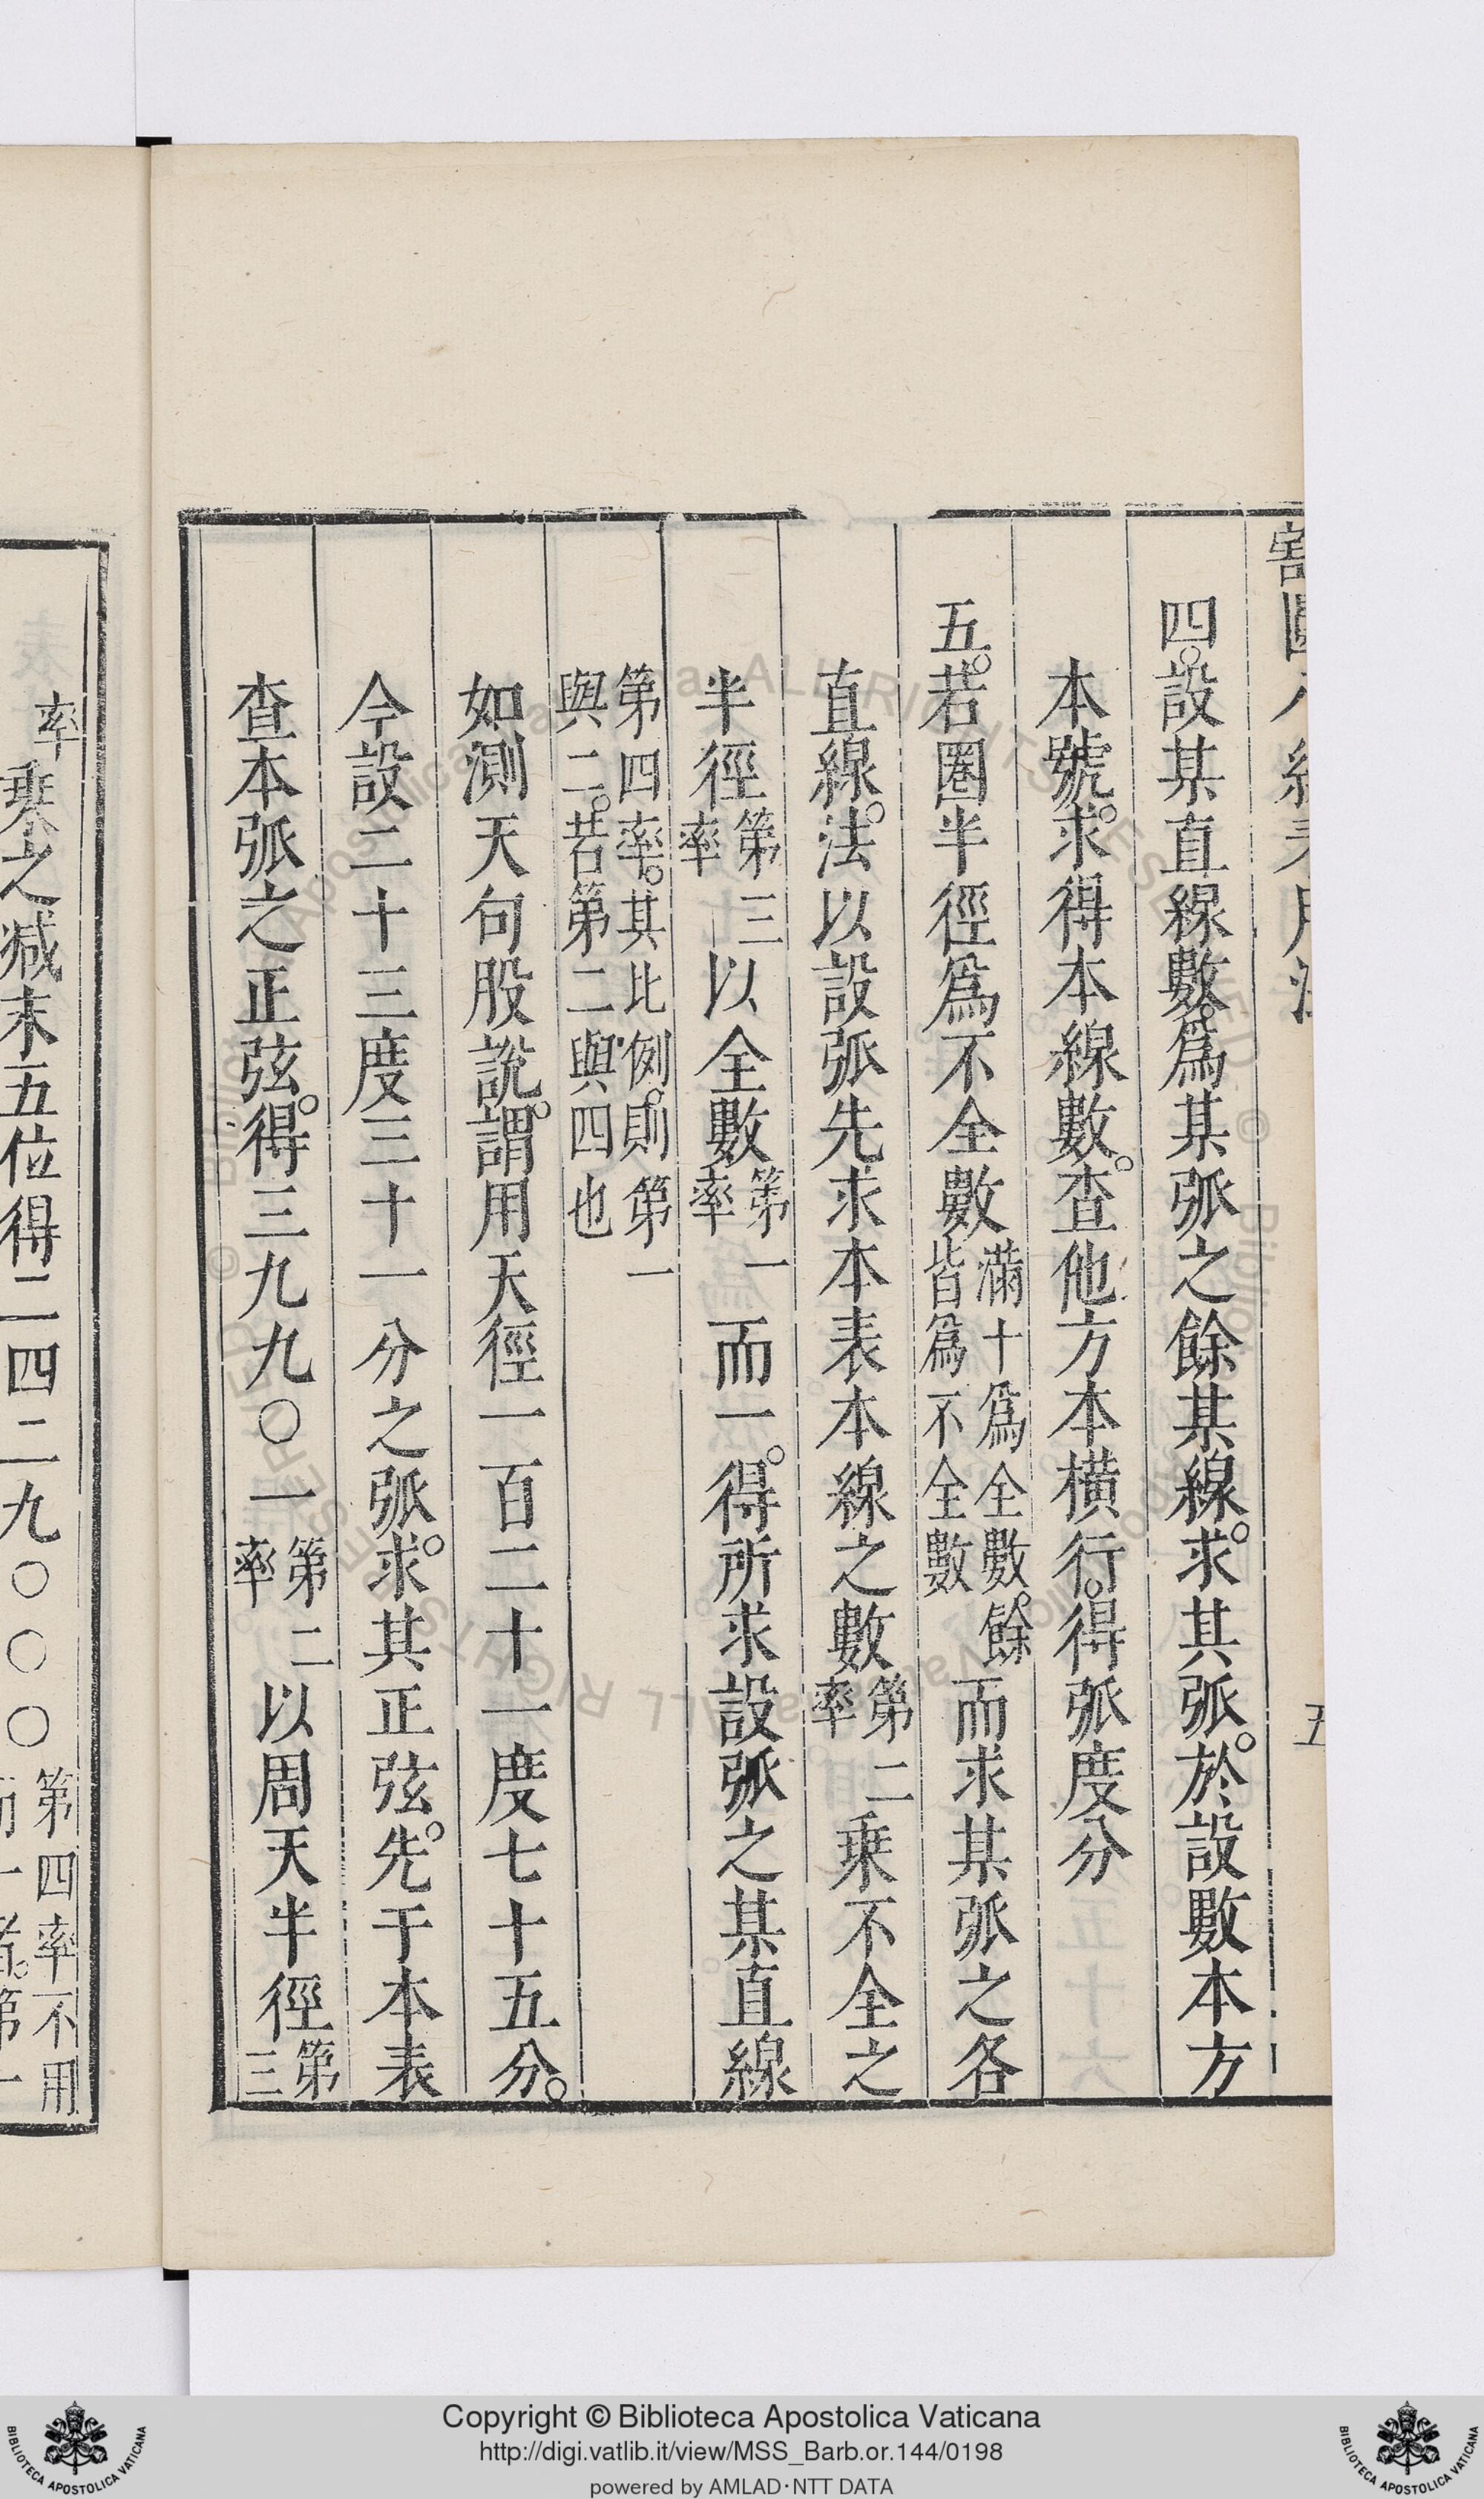 四。設某直線數。爲某弧之餘某線。求其弧。於設數本方
本號。求得本線數。查他方本橫行。得弧度分
五。若圈半徑爲不全數滿十爲全數。餘皆爲不全數而求某弧之各
直線。法以設弧先求本表本線之數第二率乗不全之
半徑第三率以全數第一率而一。得所求設弧之某直線
第四率。其比例。則第一與二。若第二與四也
如測天句股說。謂用天徑一百二十一度七十五分。
今設二十三度三十一分之弧。求其正弦。先于本表
查本弧之正弦。得三九九〇一第二率以周天半徑第三
率乗之减末五位得二四二九〇〇〇第四率不用
Copyright © Biblioteca Apostolica Vaticana
http://digi.vatlib.it/view/MSS_Barb.or.144/0198
powered by AMLAD·NTT DATA
BIBLIOTECA APOSTOLICA VATICANA
BIBLIOTECA APOSTOLICA VATICANA